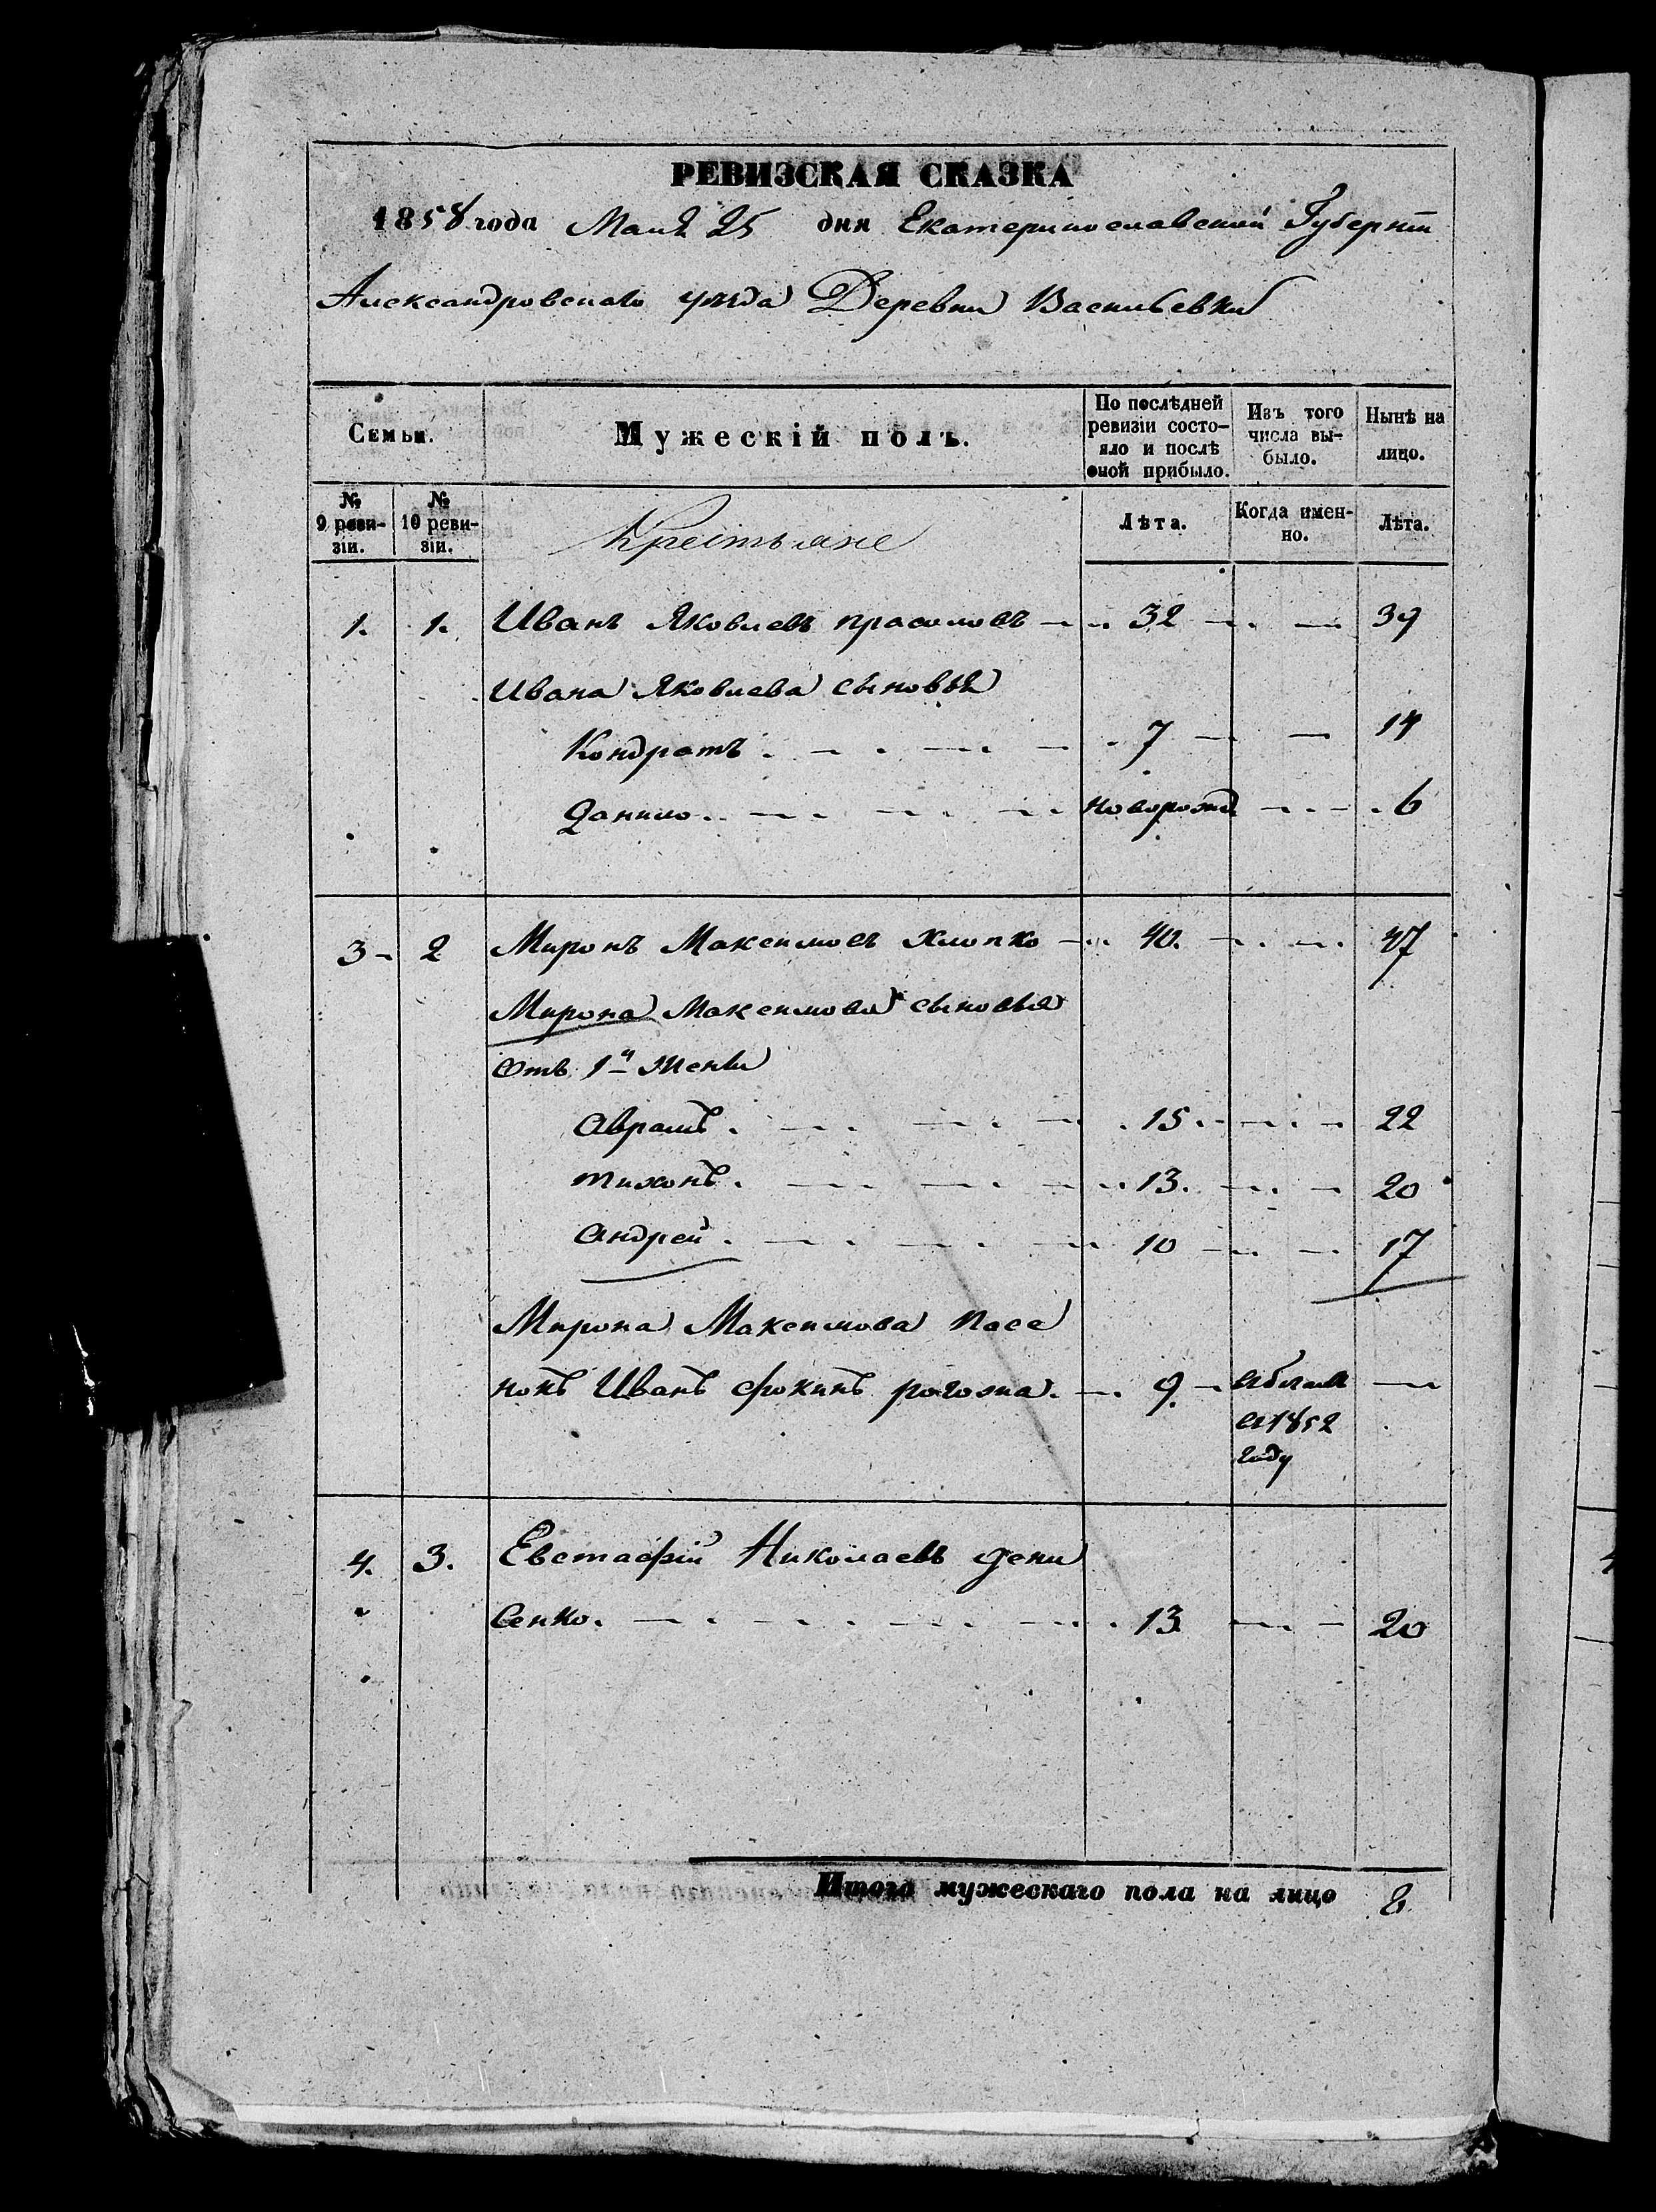 РЕВИЗСКАЯ СКАЗКА
1858 года Мая 25 дня Екатеринославской Губерніи
Александровскаго уѣзда Деревни Васильевки
Семьи.
Мужескій полъ.
По послѣдней ревизіи состо-
яло и послѣ
оной прибыло.
Изъ того
числа вы-
было.
Нынѣ на
лицо.
№ 9 реви-
зіи.
№ 10 реви-
зіи.
Крестьяне
Лѣта.
Когда имен-
но.
Лѣта.
1. 1. Иванъ Яковлевъ Прасоловъ 32 39
Ивана Яковлева сыновья
Кондратъ 7 14
Данило новорожд 6
3 2 Миронъ Максимовъ Хлопко 40 47
Мирона Максимова сыновья
отъ 1й жены
Аврамъ 15 22
Тихонъ 13 20
Андрей 10 17
Мирона Максимова пасе
нокъ Иванъ Фокинъ рогожа 9
в 1852
году
4. 3. Евстафій Николаевъ Дени
сенко. 13 20
Итого мужескаго пола на лицо 8